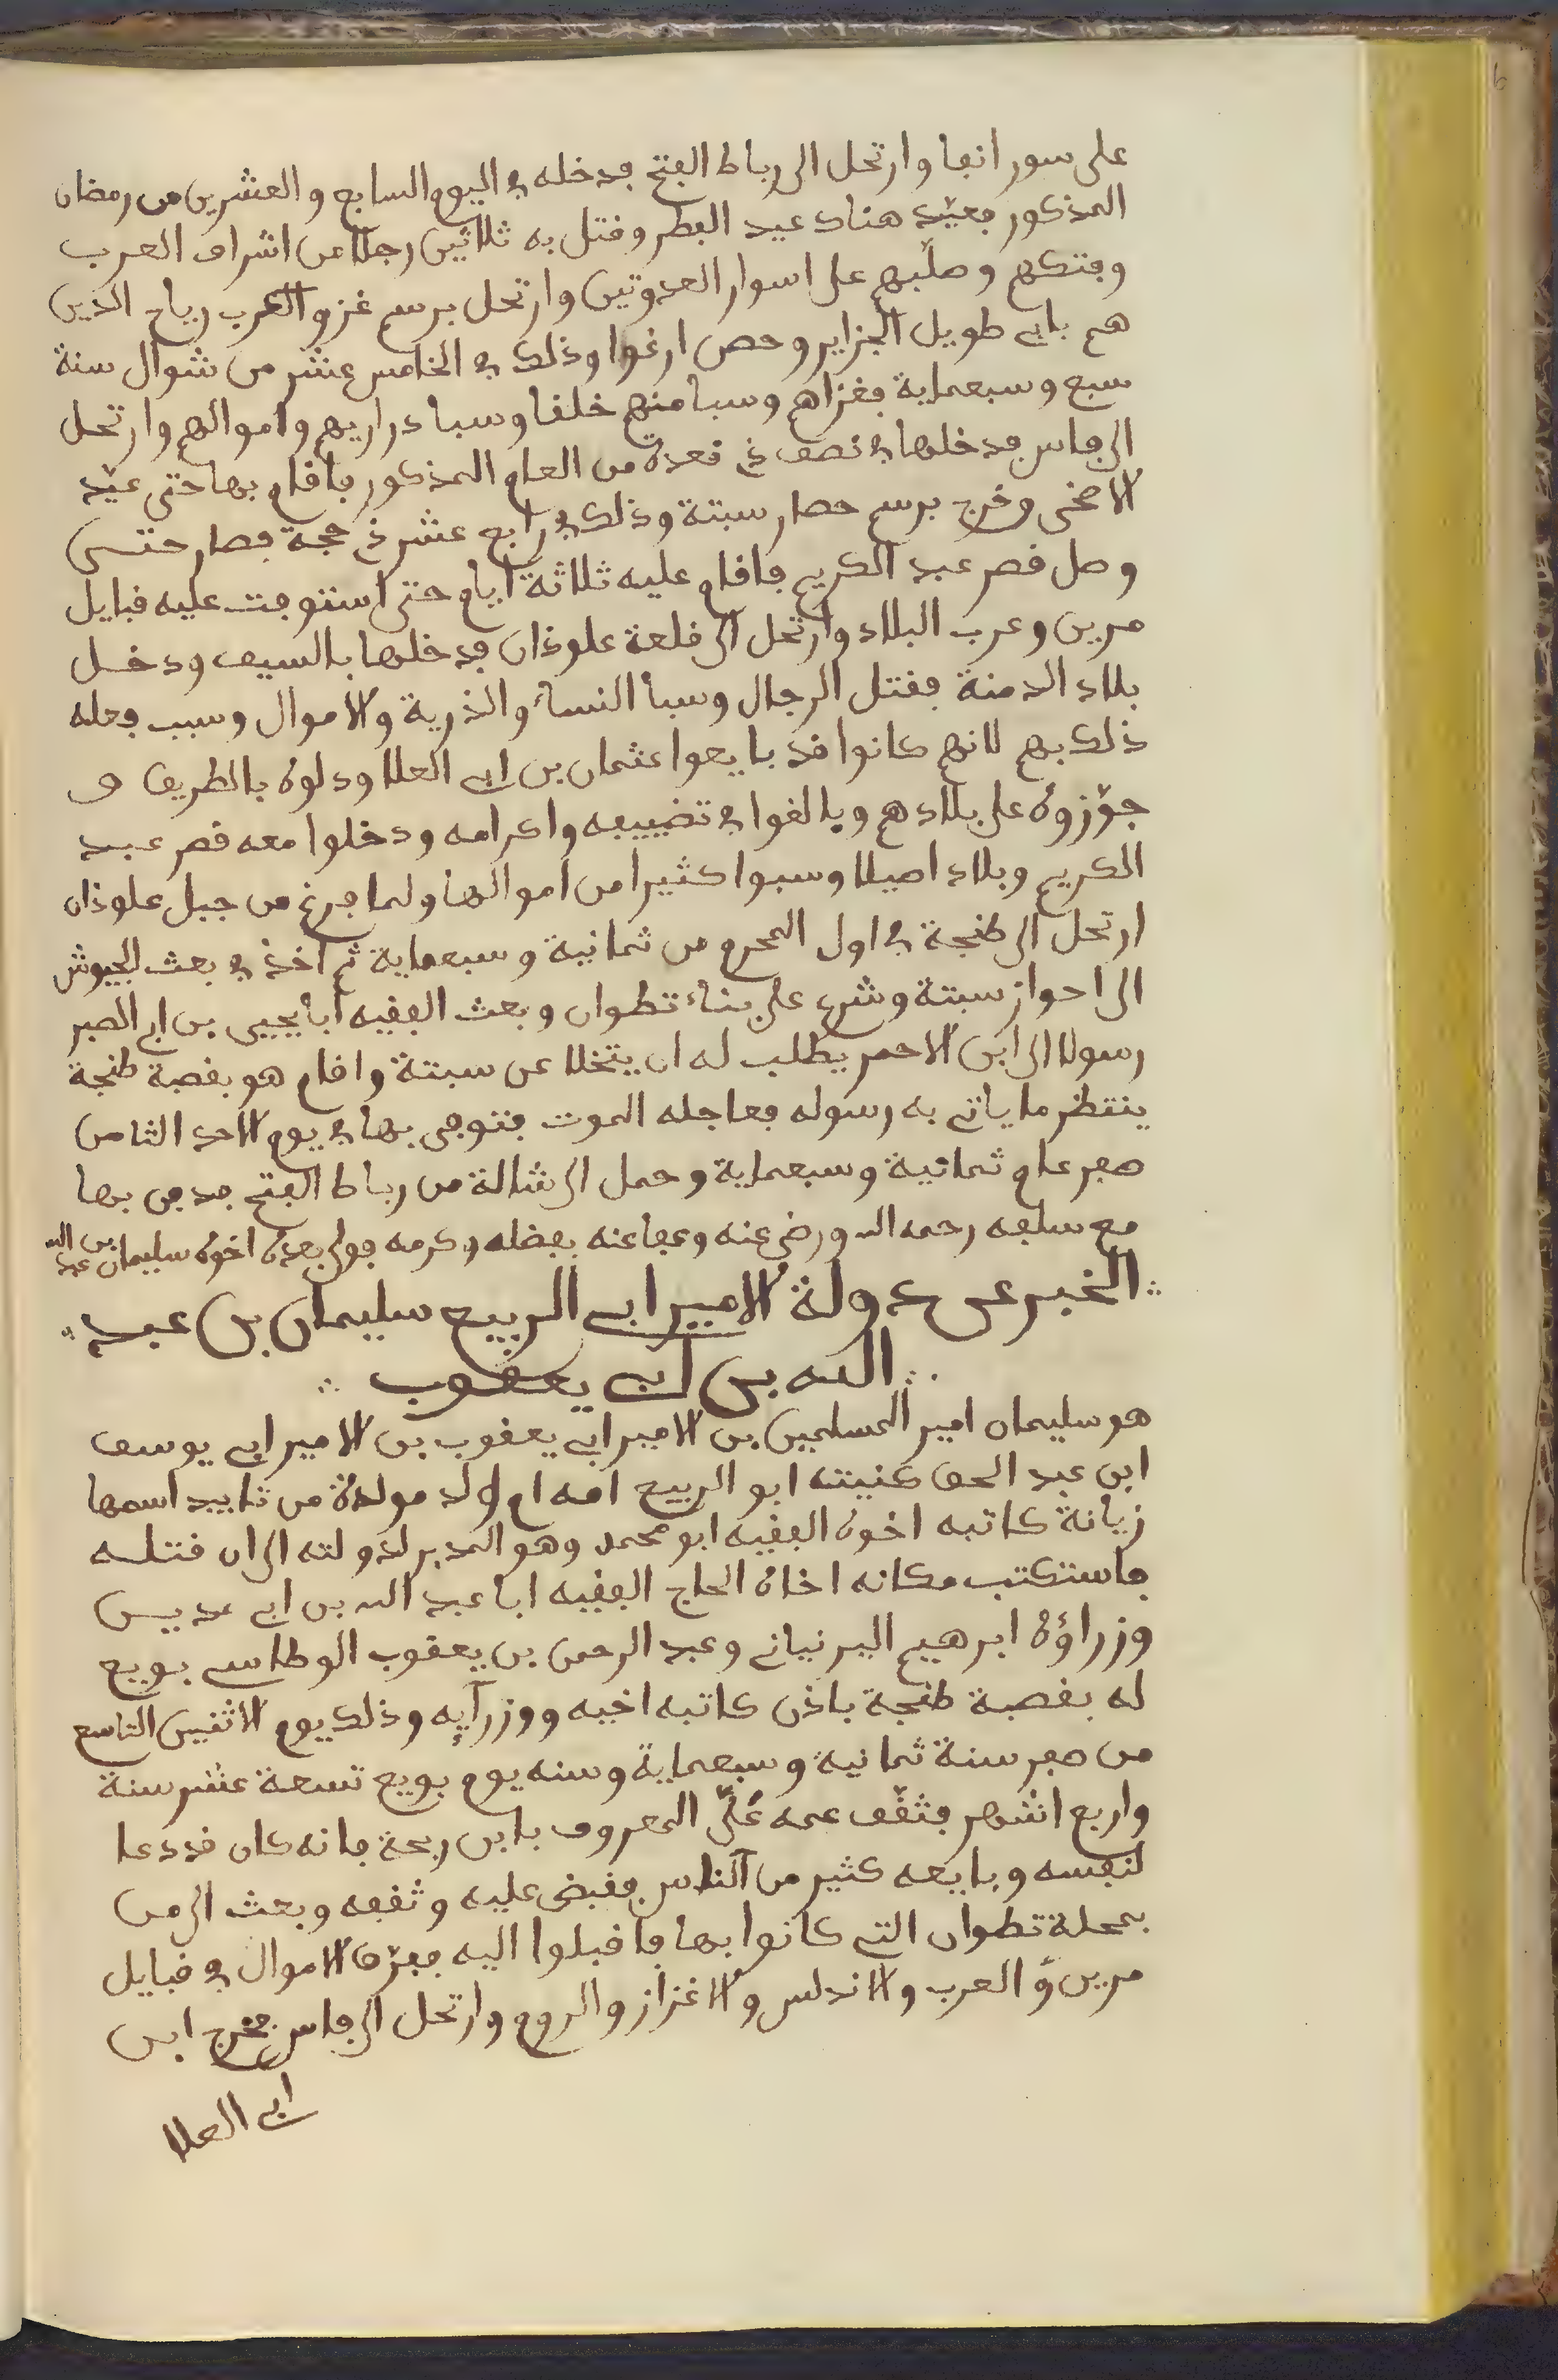 على سور انفا وارتحل الى رباط الفتح فدخله في اليوم السابع والعشرين من رمضان
المذكور فعيّد هناك عيد الفطر وقتل به ثلاثين رجلا من اشراف العرب
وفتكهم وصلّبهم على اسوار العدوتين وارتحل برسم غزو العرب رياح الذين
هم بابي طويل الجزاير وحص ارغوا وذلك في الخامس عشر من شوال سنة
سبع وسبعماية فغزاهم وسبا منهم خلقا وسبا دراريهم واموالهم وارتحل
الى فاس فدخلها في نصف ذي قعدة من العام المذكور فاقام بها حتى عيّد
الاضحى وخرج برسم حصار سبتة وذلك في رابع عشر ذي حجة فصار حتى
وصل قصر عبد الكريم فاقام عليه ثلاثة ايام حتى استوفت عليه قبايل
مرين وعرب البلاد وارتحل الى قلعة علوذان فدخلها بالسيف ودخل
بلاد الدمنة فقتل الرجال وسبا النساء والذرية والاموال وسبب فعله
ذلك بهم لانهم كانوا قد بايعوا عثمان بن ابي العلا ودلوه بالطريق و
جوّزوه على بلادهم وبالغوا في تضييفه واكرامه ودخلوا معه قصر عبد
الكريم وبلاد اصيلا وسبوا كثيرا من اموالها ولما فرغ من جبل علوذان
ارتحل الى طنجة في اول المحرم من ثمانية وسبعماية ثم اخذ في بعث الجيوش
الى احواز سبتة وشرع على بناء تطوان وبعث الفقيه ابا يحيى بن ابي الصبر
رسولا الى ابن الاحمر يطلب له ان يتخلا عن سبتة واقام هو بقصبة طنجة
ينتظر ما ياتي به رسوله فعاجله الموت فتوفى بها في يوم الاحد الثامن
صفر عام ثمانية وسبعماية وحمل الى شالة من رباط الفتح فدفن بها
مع سلفه رحمه الله ورضي عنه وعفا عنه بفضله وكرمه فولى بعده اخوه سليمان بن عبد الله
الخبر عن دولة الامير ابي الربيع سليمان بن عبد
الله بن ابي يعقوب
هو سليمان امير المسلمين بن الامير ابي يعقوب بن الامير ابي يوسف
ابن عبد الحق كنيته ابو الربيع امه ام ولد مولدة من تايبد اسمها
زيانة كاتبه اخوه الفقيه ابو محمد وهو المدبر لدولته الى ان قتله
فاستكتب مكانه اخاه الحاج الفقيه ابا عبد الله بن ابي مديس
وزراؤه ابرهيم اليرنياني وعبد الرحمن بن يعقوب الوطاسي بويع
له بقصبة طنجة باذن كاتبه اخيه ووزرآيه وذلك يوم الاثنين التاسع
من صفر سنة ثمانية وسبعماية وسنه يوم بويع تسعة عشر سنة
واربع اشهر فثقّف عمه عَلّى المعروف بابن ريحة فانه كان قد دعا
لنفسه وبايعه كثير من الناس فقبض عليه وثقفه وبعث الى من
بمحلة تطوان التي كانوا بها فاقبلوا اليه ففرّق الاموال في قبايل
مرين والعرب والاندلس والاغزاز والروم وارتحل الى فاس فخرج ابن
ابي العلا